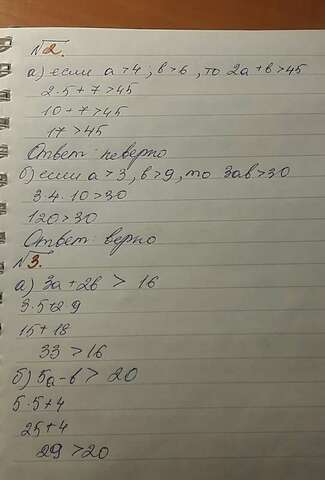 №2.
а) если a>4; b>6, то 2a+b>45
2·5+7>45
10+7>45
17>45
Ответ: неверно
б) если a>3, b>9, то 3ab>30
3·4·10>30
120>30
Ответ: верно
№3.
а) 3a+2b > 16
3·5+2·9
15+18
33>16
б) 5a-b> 20
5·5+4
25+4
29>20